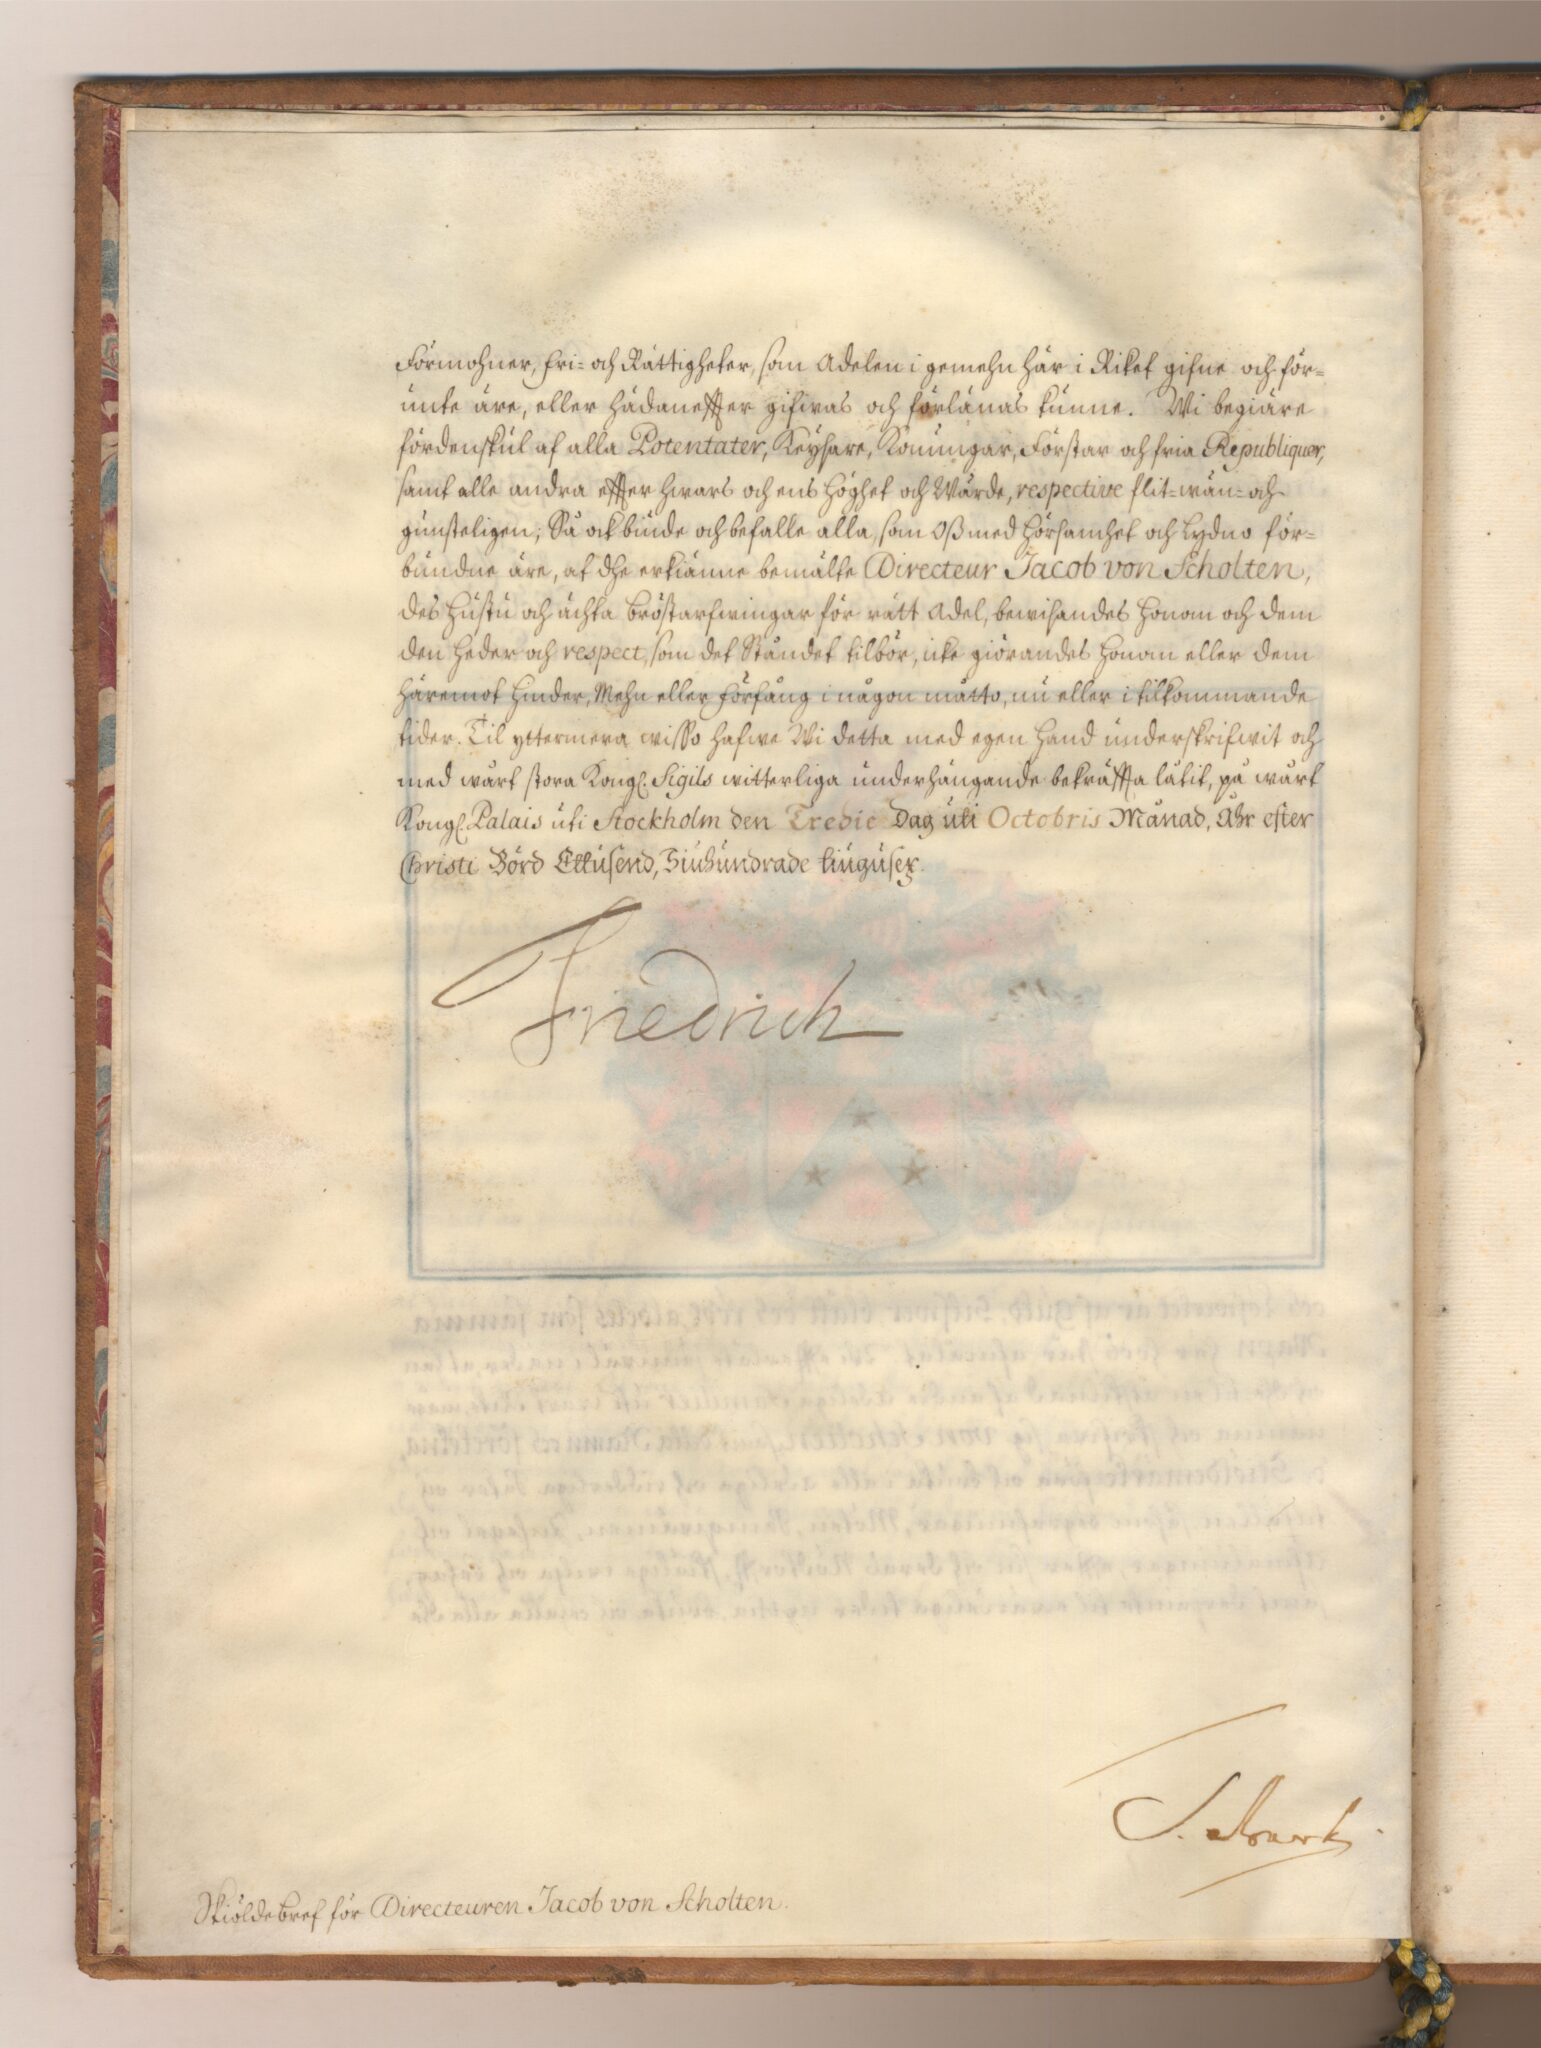 Förmohner, fri- och Rättigheter, som Adelen i gemehn här i Riket gifne och för-
unte äre, eller hädaneffter gifwas och förlänas kunne. Wi begiäre
fördenskul af alla Potentater, Keysare, Konungar, Förstar och fria Republiquer,
samt alle andra effter hwars och ens Höghet och Wärde, respective flit-wän- och
gunsteligen; Så ock biude och befalle alla, som Oß med Hörsamhet och Lydno för-
bundne äre, at dhe erkiänne bemälte Directeur Jacob von Scholten,
des Hustu och ächta Bröstarfwingar för rätt Adel, bewisandes Honom och dem
den Heder och respect, som det Ståndet tilbör, icke giörandes Honom eller dem
häremot Hinder, Mehn eller Förfång i någon måtto, nu eller i tilkommande
tider. Til yttermera wisso hafwe Wi detta med egen Hand underskrifwit och
med wårt stora Kongl. Sigils witterliga underhängande bekräffta låtit, på wårt
Kongl. Palais uti Stockholm den Tredie Dag uti Octobris Månad, Åhr efter
Christi Börd Ettusend, Siuhundrade tiugusex.
Friedrich
Skiöldebref för Directeuren Jacob von Scholten.